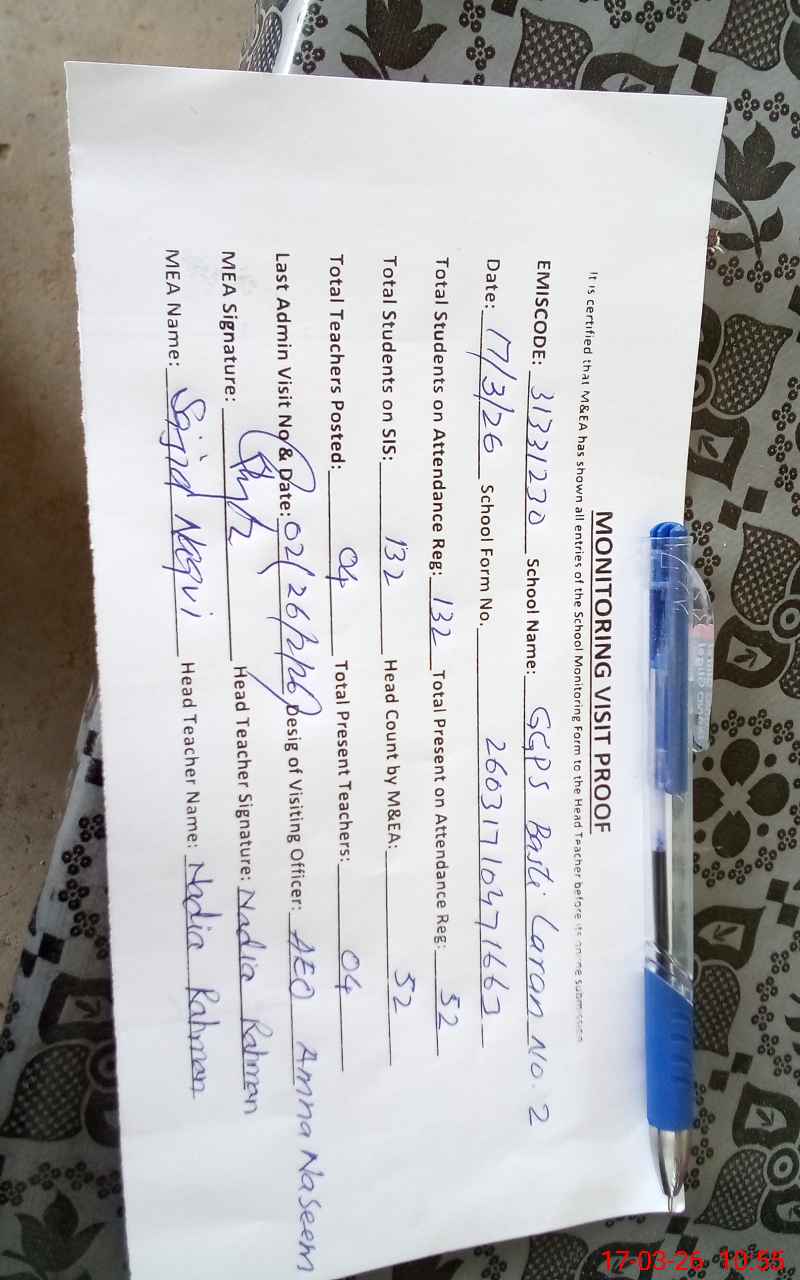 MONITORING VISIT PROOF
It is certified that M&EA has shown all entries of the School Monitoring Form to the Head Teacher before its online submission
EMISCODE: 31331230 School Name: GGPS Basti Laran No. 2
Date: 17/3/26 School Form No. 26031710471663
Total Students on Attendance Reg: 132 Total Present on Attendance Reg: 52
Total Students on SIS: 132 Head Count by M&EA: 52
Total Teachers Posted: 04 Total Present Teachers: 04
Last Admin Visit No & Date: 02/26/2/26 Desig of Visiting Officer: AEO Amna Naseem
MEA Signature: Head Teacher Signature: Nadia Rahman
MEA Name: Sajid Naqvi Head Teacher Name: Nadia Rahman
17-03-26 10:55